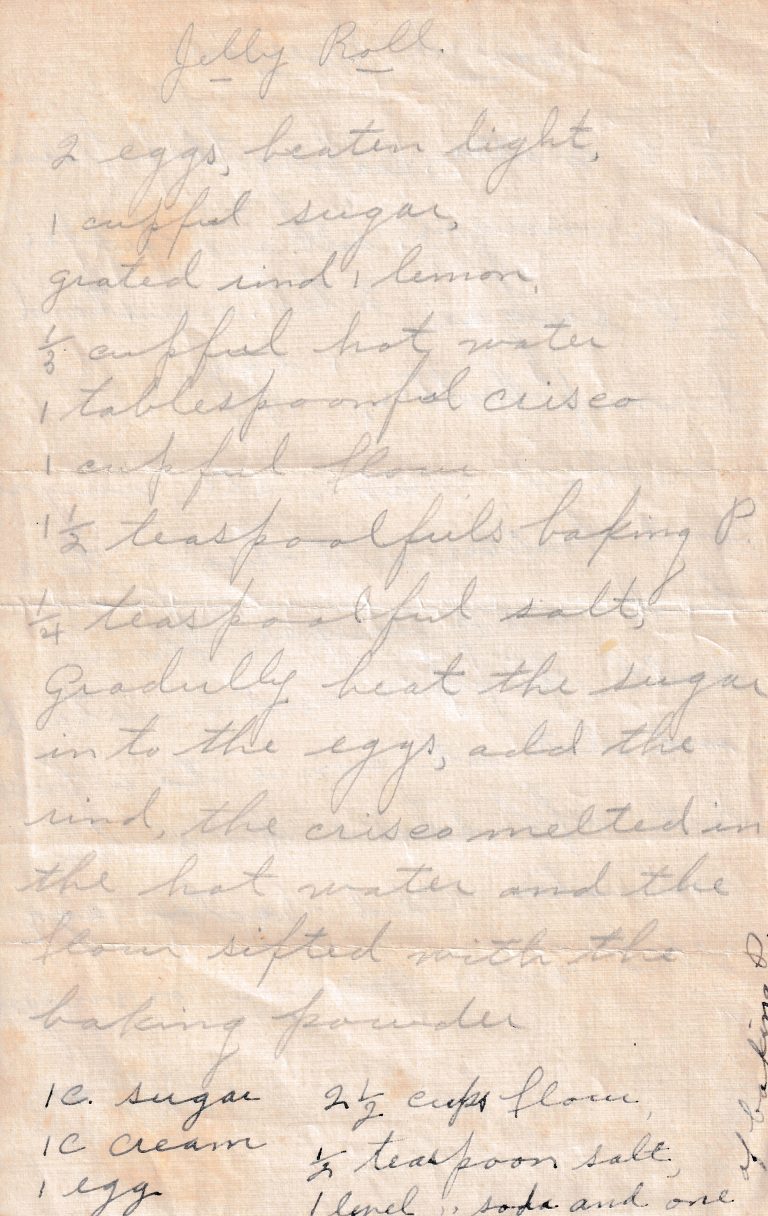 Jelly Roll.
2 eggs, beaten light,
1 cupful sugar,
grated rind 1 lemon,
1/3 cupful hot water
1 tablespoonful crisco
1 cupful flour
1 1/2 teaspoolfuls baking P.
1/4 teaspoolful salt,
Gradully beat the sugar
into the eggs, add the
rind, the crisco melted in
the hot water and the
flour sifted with the
baking powder
1c. sugar
1c cream
1 egg
2 1/2 cups flour,
1/2 teaspoon salt,
1 level " soda and one
of baking P.